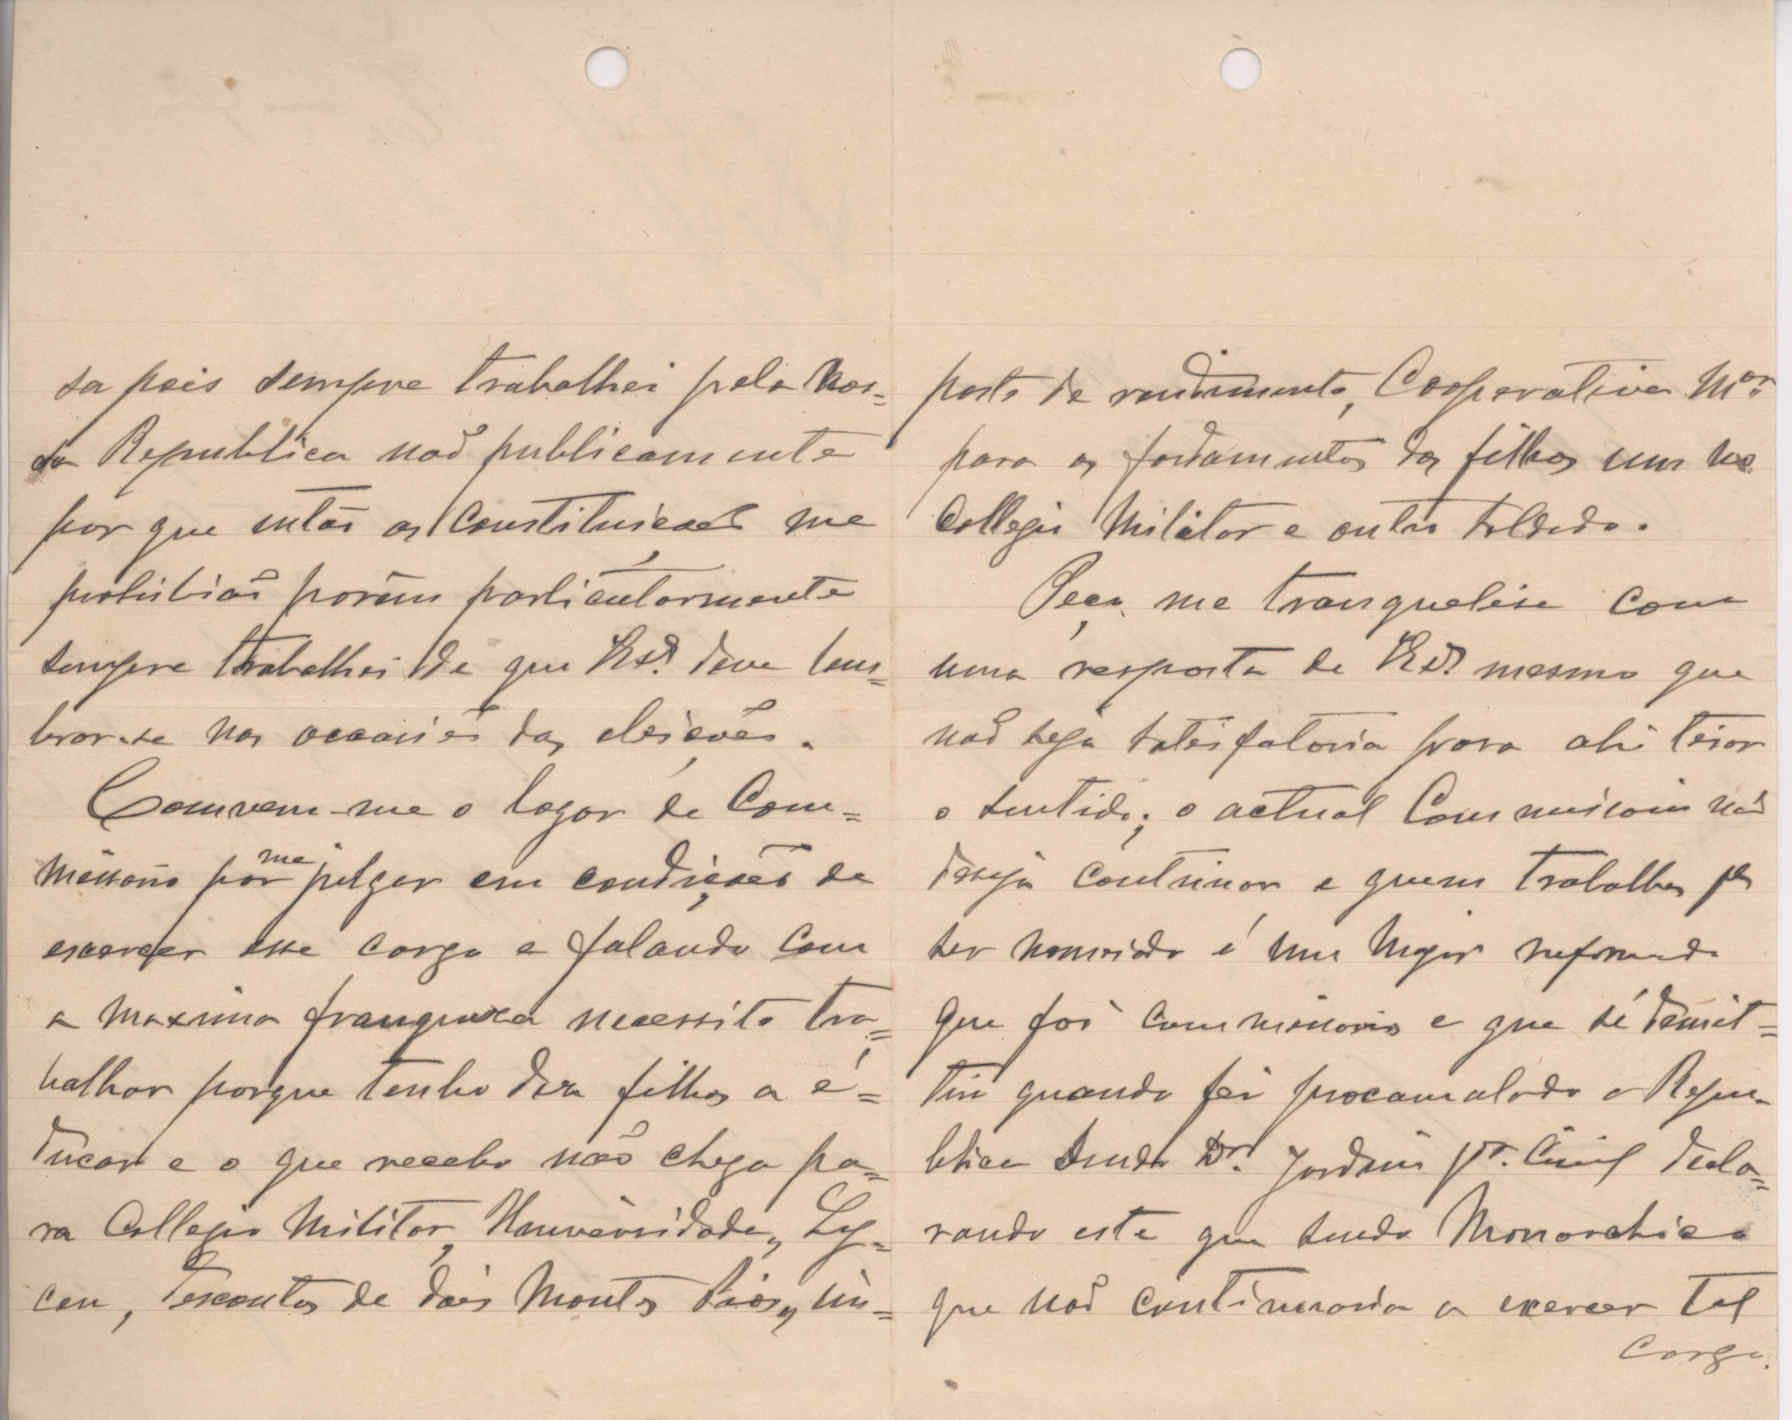 sa pois sempre trabalhei pela Nos=
sa Republica não publicamente
por que então as Constituições me
prohibião porém particularmente
sempre trabalhei de que deve lem=
brar-se nas occasiões das eleições.
Comvem-me o logar de Com=
missario por me julgar em condições de
exercer esse cargo e falando com
a maxima franqueza necessito tra=
balhar porque tenho dez filhos a é=
ducar e o que recebo não chega pa=
ra Collegio Militar, Universidade, Ly=
ceu, descontos de dois Montes Pios, im=
posto de rendimento, Cooperativa Mar
para os fardamentos dos filhos um no
Collegio Militar e outro Soldado.
Peço me tranquelise com
uma resposta de mesmo que
não seja satisfatoria para ahi tirar
o sentido; o actual Commissario não
deseja continuar e quem trabalha pa
ser nomeado é um Major reformado
que foi commissario e que sé demit=
tiu quando foi procamalada a Repu=
blica sendo Dr. Jordão Civil decla=
rando este que sendo Monarchico
que não continuaria a exercer tal
cargo.